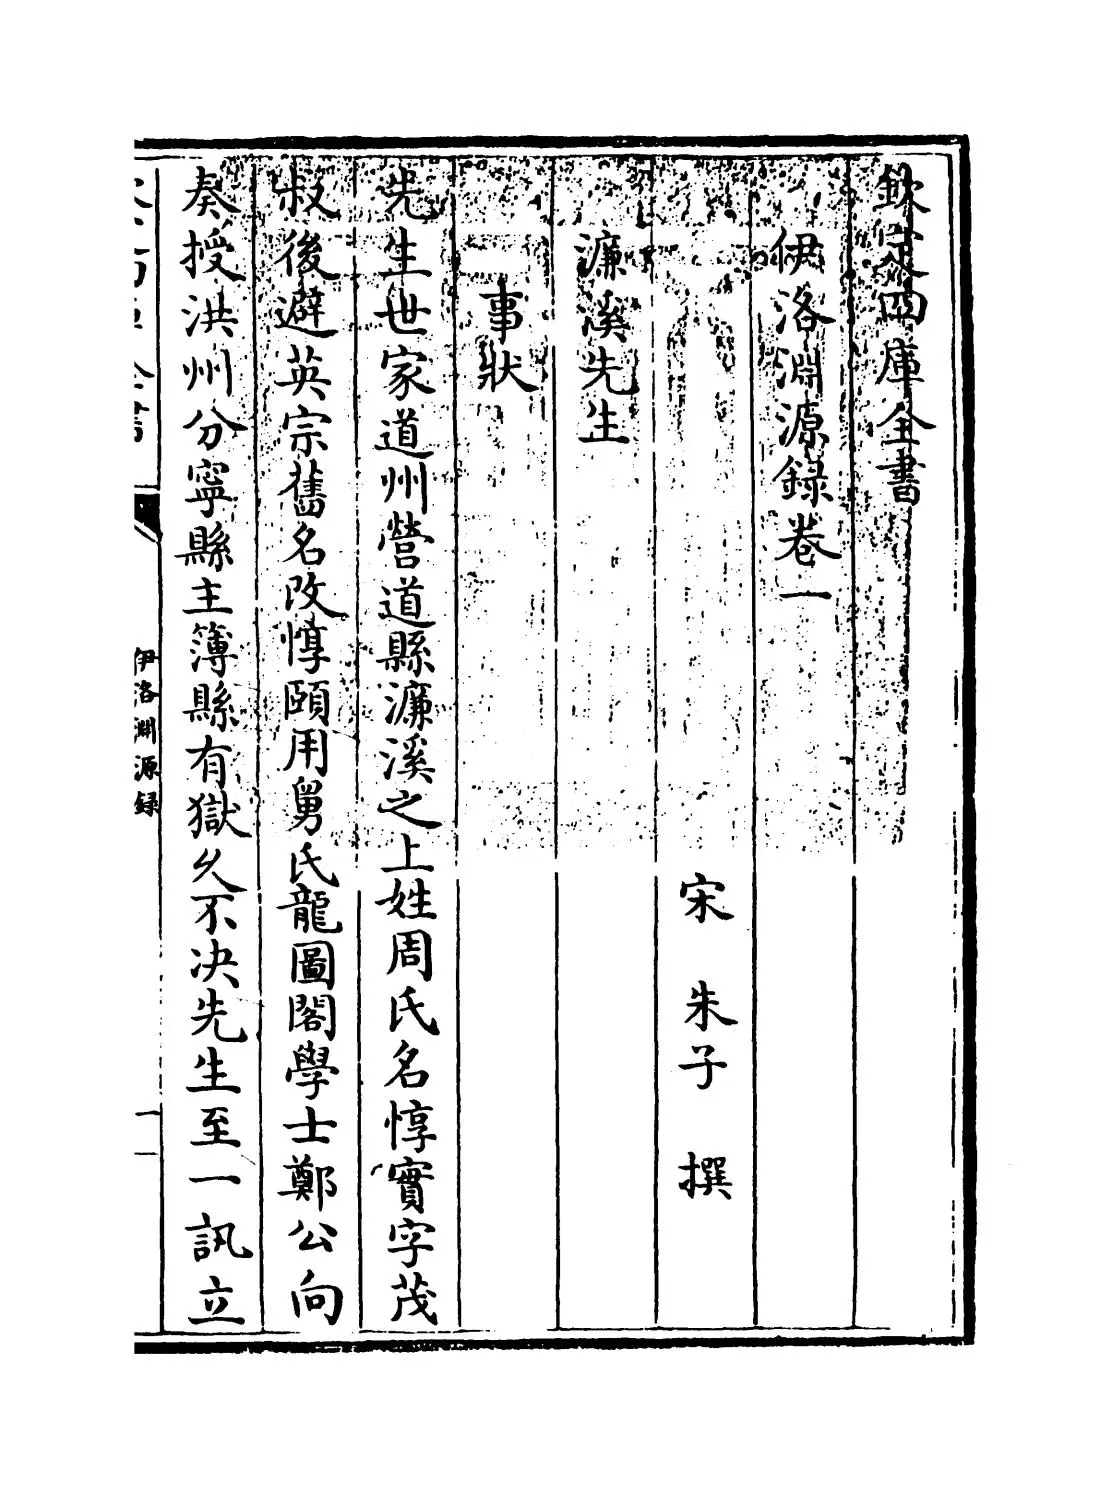 欽定四庫全書
伊洛淵源録卷一
宋 朱子 撰
濂溪先生
事狀
先生世家道州營道縣濂溪之上姓周氏名惇實字茂
叔後避英宗舊名改惇頤用舅氏龍圖閣學士鄭公向
奏授洪州分寧縣主簿縣有獄久不決先生至一訊立
伊洛淵源録
一